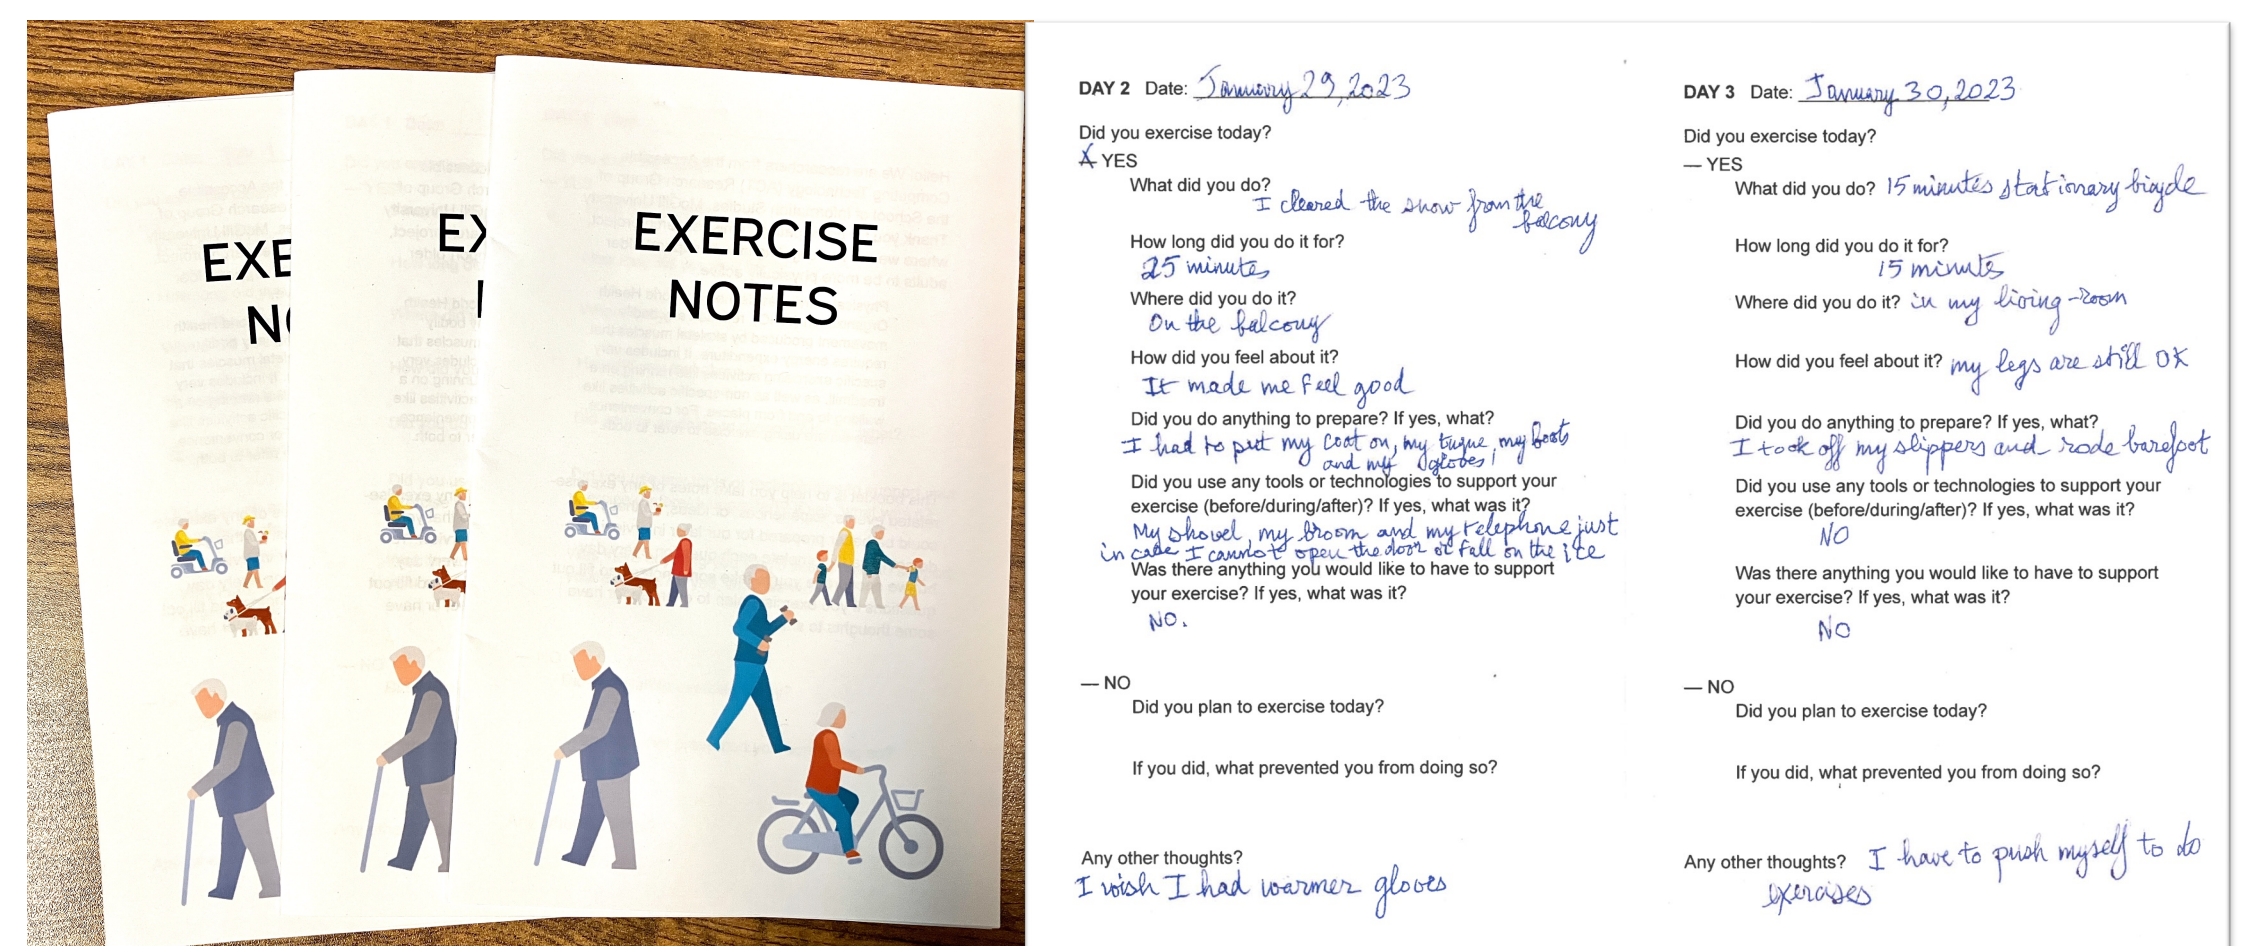 EXE
N
EX
EXERCISE
NOTES
DAY 2 Date: January 29, 2023
Did you exercise today?
X YES
What did you do?
I cleared the snow from the
balcony
How long did you do it for?
25 minutes
Where did you do it?
On the balcony
How did you feel about it?
It made me feel good
Did you do anything to prepare? If yes, what?
I had to put my coat on, my tuque, my boots
and my gloves!
Did you use any tools or technologies to support your
exercise (before/during/after)? If yes, what was it?
My shovel, my broom and my telephone just
in case I cannot open the door or fall on the ice
Was there anything you would like to have to support
your exercise? If yes, what was it?
NO.
— NO
Did you plan to exercise today?
If you did, what prevented you from doing so?
Any other thoughts?
I wish I had warmer gloves
DAY 3 Date: January 30, 2023
Did you exercise today?
— YES
What did you do? 15 minutes stationary bicycle
How long did you do it for?
15 minutes
Where did you do it? in my living-room
How did you feel about it? my legs are still OK
Did you do anything to prepare? If yes, what?
I took off my slippers and rode barefoot
Did you use any tools or technologies to support your
exercise (before/during/after)? If yes, what was it?
NO
Was there anything you would like to have to support
your exercise? If yes, what was it?
NO
— NO
Did you plan to exercise today?
If you did, what prevented you from doing so?
Any other thoughts? I have to push myself to do
exercises